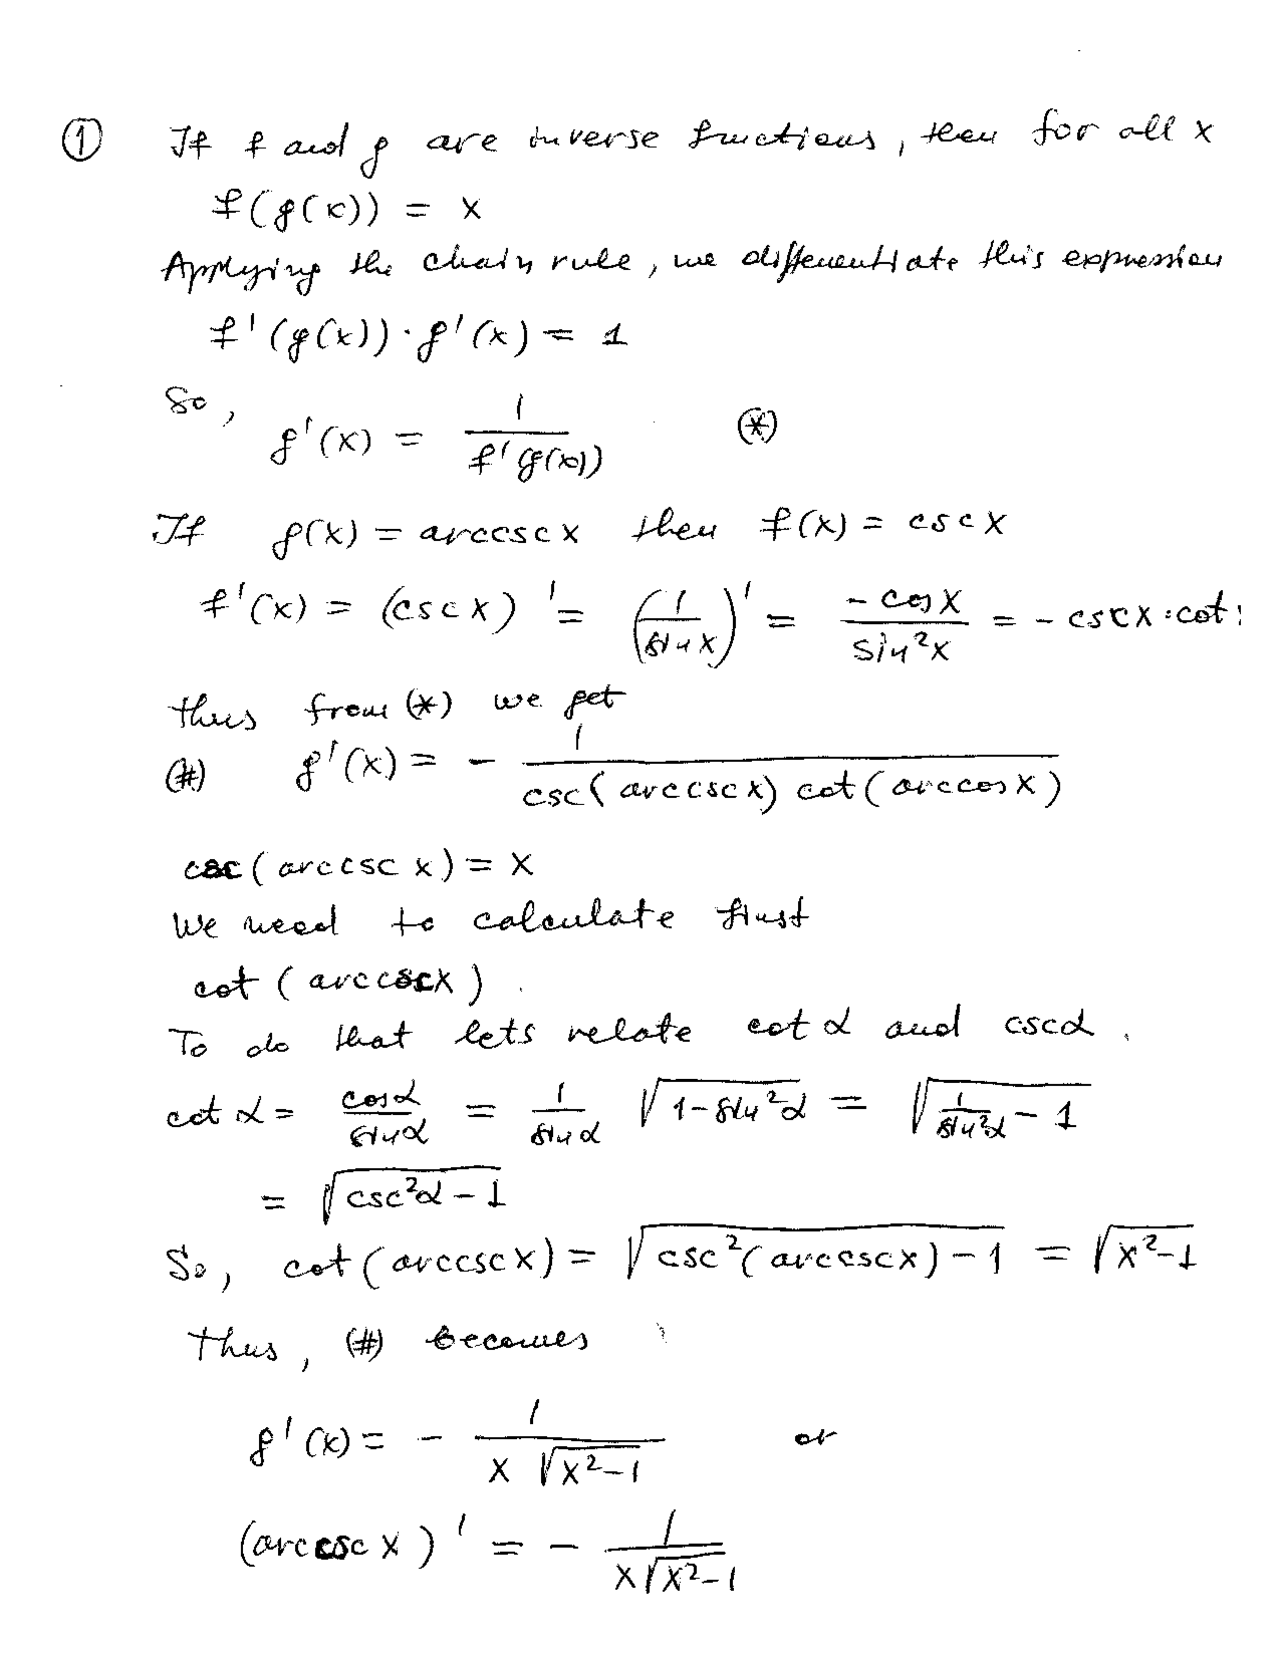 ① If f and g are inverse functions, then for all x
f(g(x)) = x
Applying the chain rule, we differentiate this expression
f'(g(x)) · g'(x) = 1
So,
g'(x) = 1 / f'(g(x)) (*)
If g(x) = arccsc x then f(x) = csc x
f'(x) = (csc x)' = (1 / sin x)' = -cos x / sin²x = - csc x · cot
thus from (*) we get
(#) g'(x) = - 1 / csc(arccsc x) cot(arccos x)
csc(arccsc x) = x
We need to calculate first
cot (arccscx).
To do that lets relate cot α and csc α.
cot α = cos α / sin α = 1 / sin α √(1 - sin²α) = √(1 / sin²α - 1)
= √(csc²α - 1)
So, cot(arccsc x) = √(csc²(arccsc x) - 1) = √(x² - 1)
Thus, (#) becomes
g'(x) = - 1 / x √(x² - 1) or
(arccsc x)' = - 1 / x√(x² - 1)